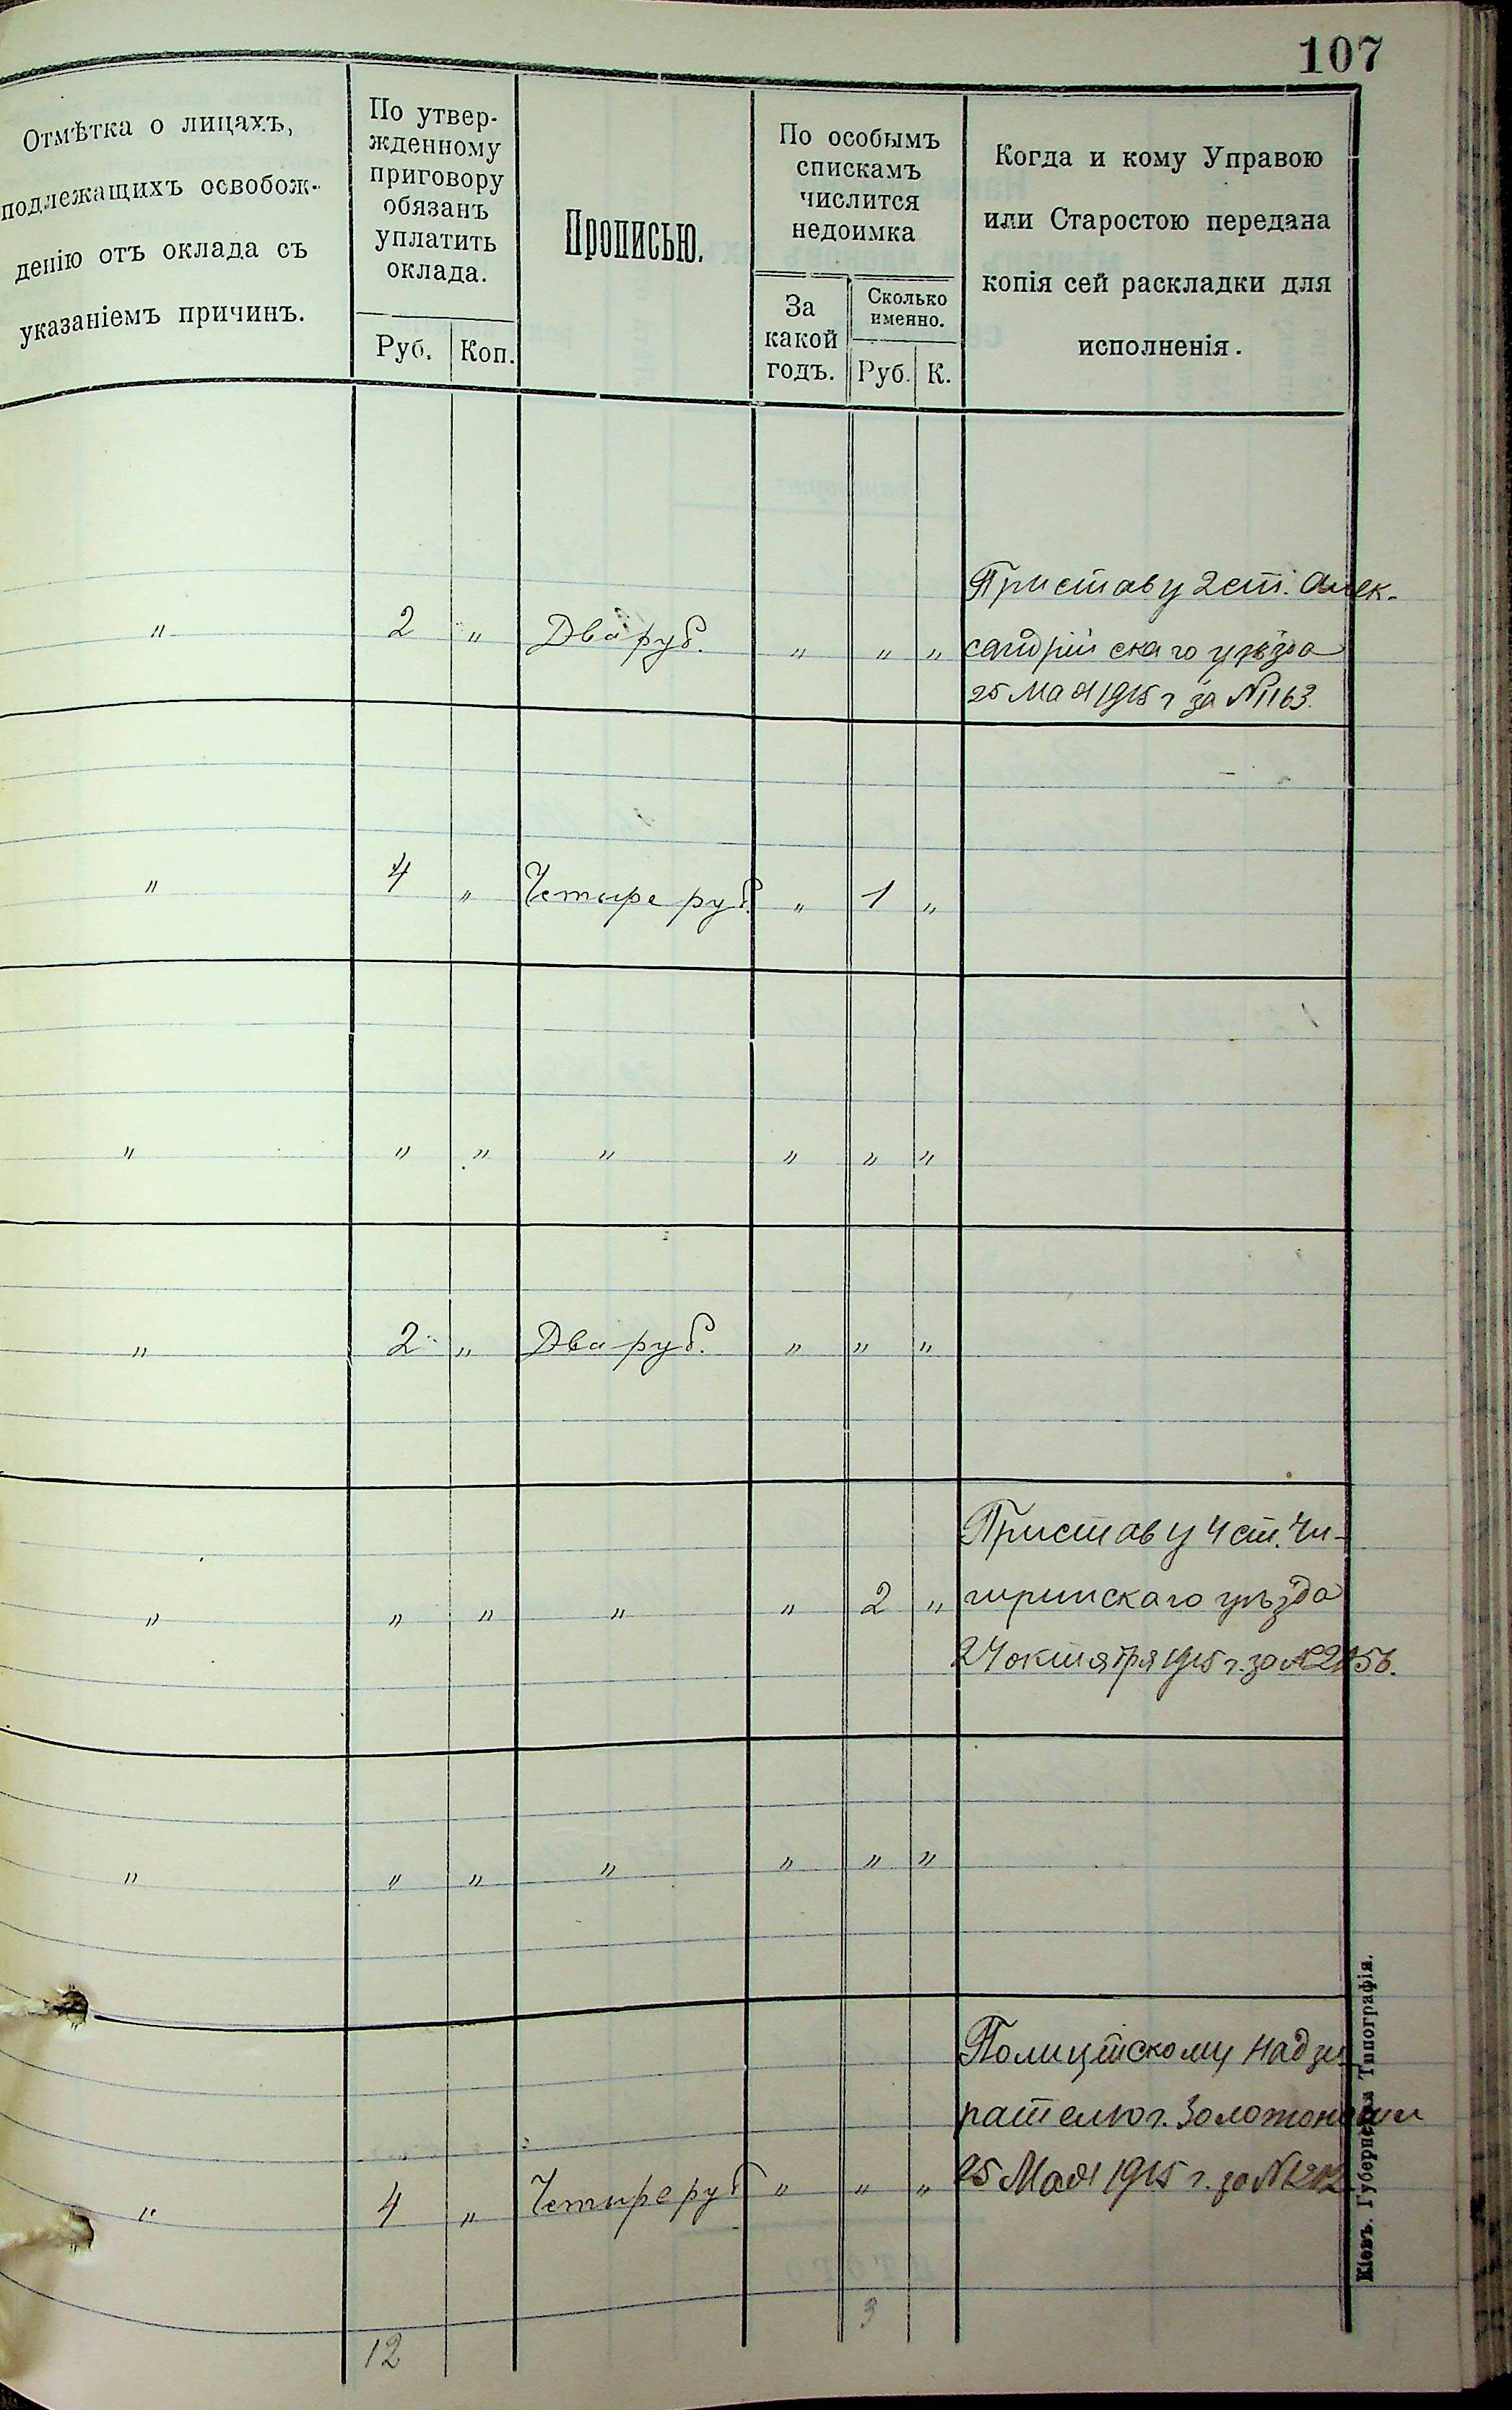 107
Отмѣтка о лицахъ,
подлежащихъ освобож-
денію отъ оклада съ
указаніемъ причинъ.
По утвер-
жденному
приговору
обязанъ
уплатить
оклада.
Руб. Коп.
Прописью.
По особымъ
спискамъ
числится
недоимка
За
какой
годъ.
Сколько
именно.
Руб. К.
Когда и кому Управою
или Старостою передана
копія сей раскладки для
исполненія.
Приставу 2 ст. Алек-
" 2 " Два руб. " " " сандрійскаго уѣзда
25 Мая 1915 г за № 1163.
" 4 " Четыре руб. " 1 "
" " " " " " "
" 2 " Два руб. " " "
Приставу 4 ст. Чи-
" " " " " 2 " гиринскаго уѣзда
24 октября 1915 г. за №
" " " " " " "
Полицейскому надзи
рателю г. Золотоноши
" 4 " Четыре руб " " " 25 Мая 1915 г. за № 1202
12 3
Кіевъ. Губернская Типографія.